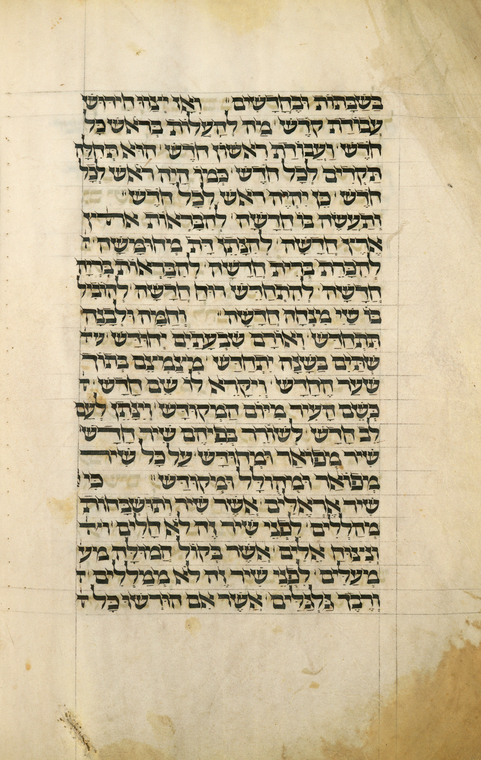 בשבתות ובחדשים ואז יצוו חידוש
עבודת קדש מה להעלות בראש כל
חדש ועבודת ראשון חדש הוא תחלת
תקדים לכל חדש כמו היה ראש לכל
חדש כן יהיה ראש לכל חדש
יתעשה בו חדשה להבראות ארץ
ארץ חדשה להנתן דת מחומשה
להכרת ברית חדשה להבראות בריה
חדשה להתחדש רוח חדשה להובל
בו שי מנחה חדשה וחמה ולבנה
תתחדש ואורם שבעתים יחודש
שתים בשנה יתחדש בתוך
שער החדש ויקרא לו שם חדש
בשם העיר מיום המקודש וינתן לעם
לב חדש לשורר בפיהם שיר חדש
שיר מפואר ומקודש על כל שיר
מפואר ומהולל ומקודש כי
שיר אראלים אשר שיר ותושבחות
מהללים לפני שיר זה לא חלים
וניגוח אלים אשר בקול המולה
מעלים לפני שיר זה לא ממללים
ורכך גלגלים אשר אם הורשו כל